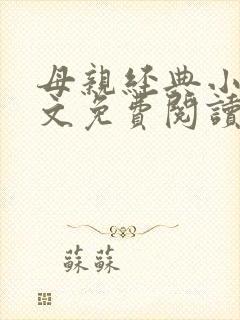 母親經典小
文免費閱讀
蘇蘇